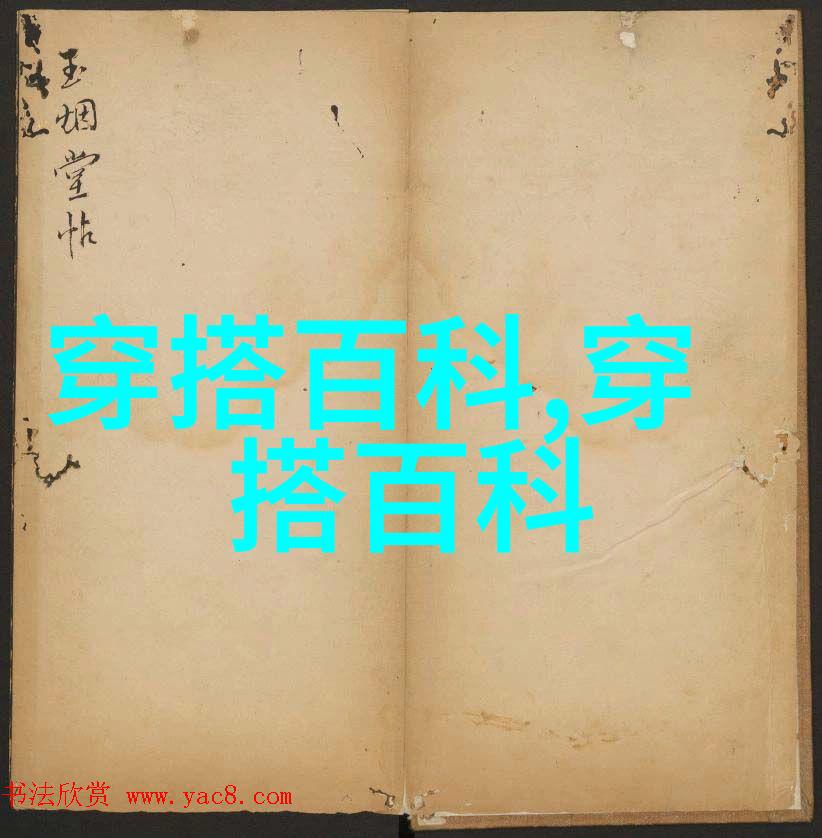 玉烟堂帖
穿搭百科,穿
搭百科
书法欣赏 www.yac8.com